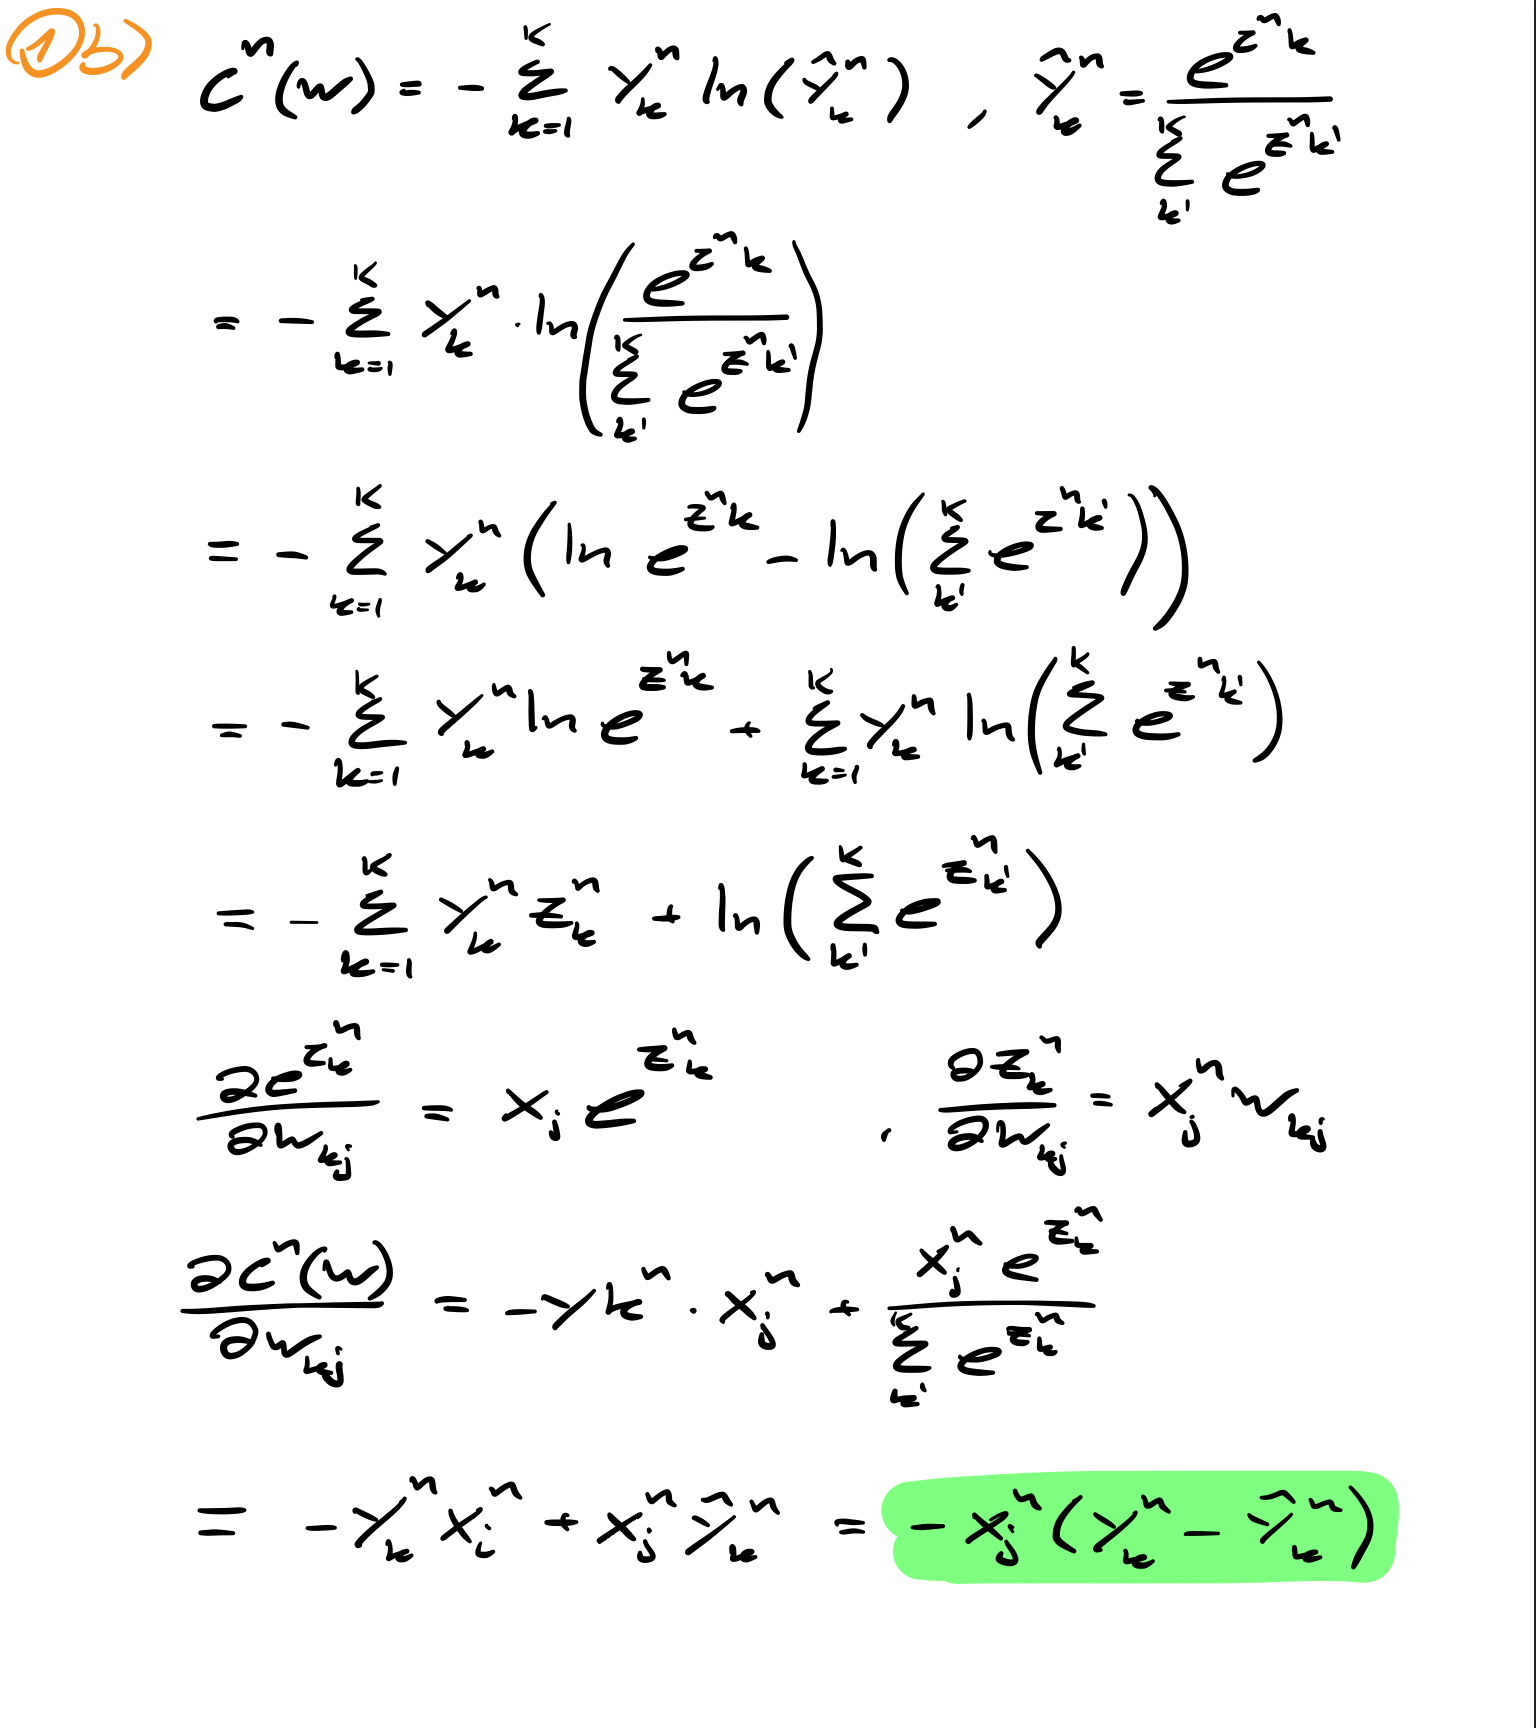 1b)
C^n(w) = - \sum_{k=1}^{K} y_k^n ln(ŷ_k^n) , ŷ_k^n = \frac{e^{z^n k}}{\sum_{k'}^{K} e^{z^n k'}}
= - \sum_{k=1}^{K} y_k^n · ln(\frac{e^{z^n k}}{\sum_{k'}^{K} e^{z^n k'}})
= - \sum_{k=1}^{K} y_k^n (ln e^{z^n k} - ln(\sum_{k'}^{K} e^{z^n k'}))
= - \sum_{k=1}^{K} y_k^n ln e^{z^n k} + \sum_{k=1}^{K} y_k^n ln(\sum_{k'}^{K} e^{z^n k'})
= - \sum_{k=1}^{K} y_k^n z_k^n + ln(\sum_{k'}^{K} e^{z_{k'}^n})
\frac{∂e^{z_k^n}}{∂w_{kj}} = x_j e^{z_k^n} , \frac{∂z_k^n}{∂w_{kj}} = x_j^n w_{kj}
\frac{∂C^n(w)}{∂w_{kj}} = -y k^n · x_j^n + \frac{x_j^n e^{z_k^n}}{\sum_{k'}^{K} e^{z_k^n}}
= -y_k^n x_i^n + x_j^n ŷ_k^n = -x_j^n(y_k^n - ŷ_k^n)